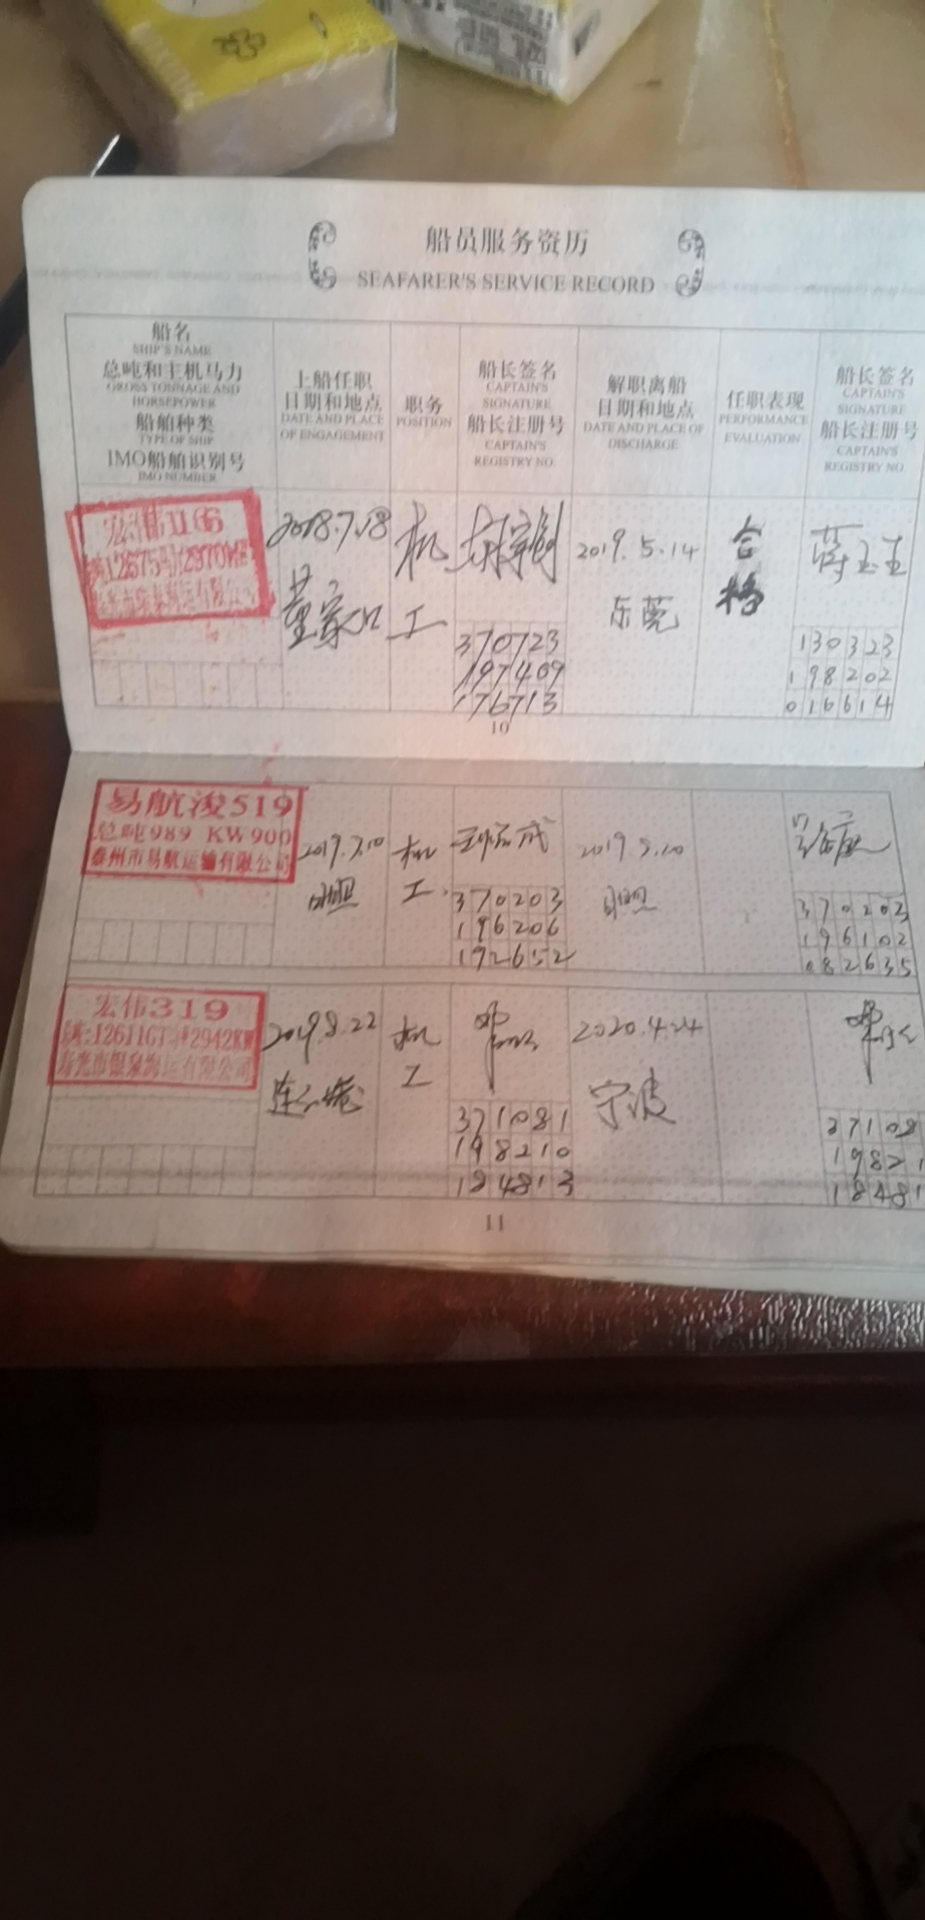 船员服务资历
SEAFARER'S SERVICE RECORD
船名
SHIP'S NAME
总吨和主机马力
GROSS TONNAGE AND
HORSEPOWER
船舶种类
TYPE OF SHIP
IMO船舶识别号
IMO NUMBER
上船任职
日期和地点
DATE AND PLACE
OF ENGAGEMENT
职务
POSITION
船长签名
CAPTAIN'S
SIGNATURE
船长注册号
CAPTAIN'S
REGISTRY NO.
解职离船
日期和地点
DATE AND PLACE OF
DISCHARGE
任职表现
PERFORMANCE
EVALUATION
船长签名
CAPTAIN'S
SIGNATURE
船长注册号
CAPTAIN'S
REGISTRY NO.
2018.7.18
董家口
机
工
370723
197409
176713
2019.5.14
东莞
合
格
蒋玉玉
130323
198202
016614
10
易航浚519
总吨989 KW900
泰州市易航运输有限公司
日照
机
工
370203
196206
192652
日照
370203
196102
082635
宏伟319
寿光市银泉海运有限公司
2019.8.22
连云港
机
工
371081
198210
184813
2020.4.24
宁波
37108
19821
18481
11